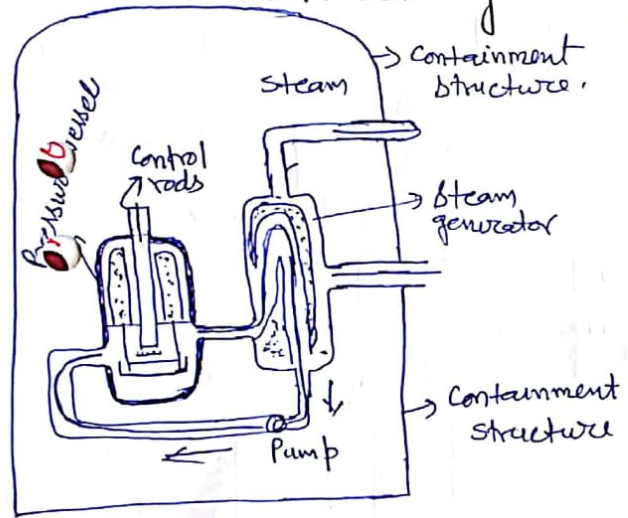 Containment
structure.
Steam
Control
rods
Steam
generator
Containment
structure
Pump